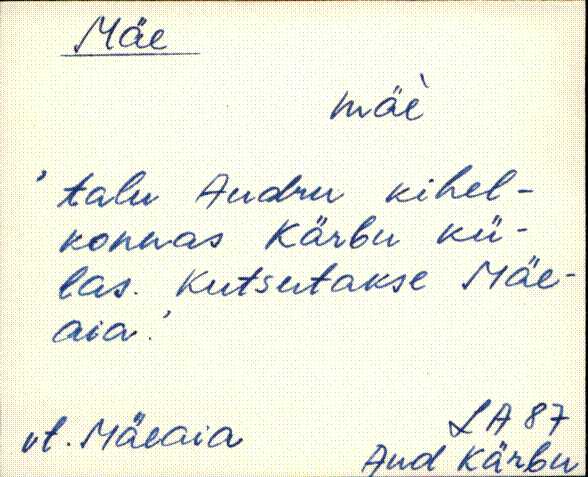 Mäe
mäè
'talu Audru kihel-
konnas Kärbu kü-
las. Kutsutakse Mäe-
aia.'
vt. Mäeaia
LA 87
Aud Kärbu